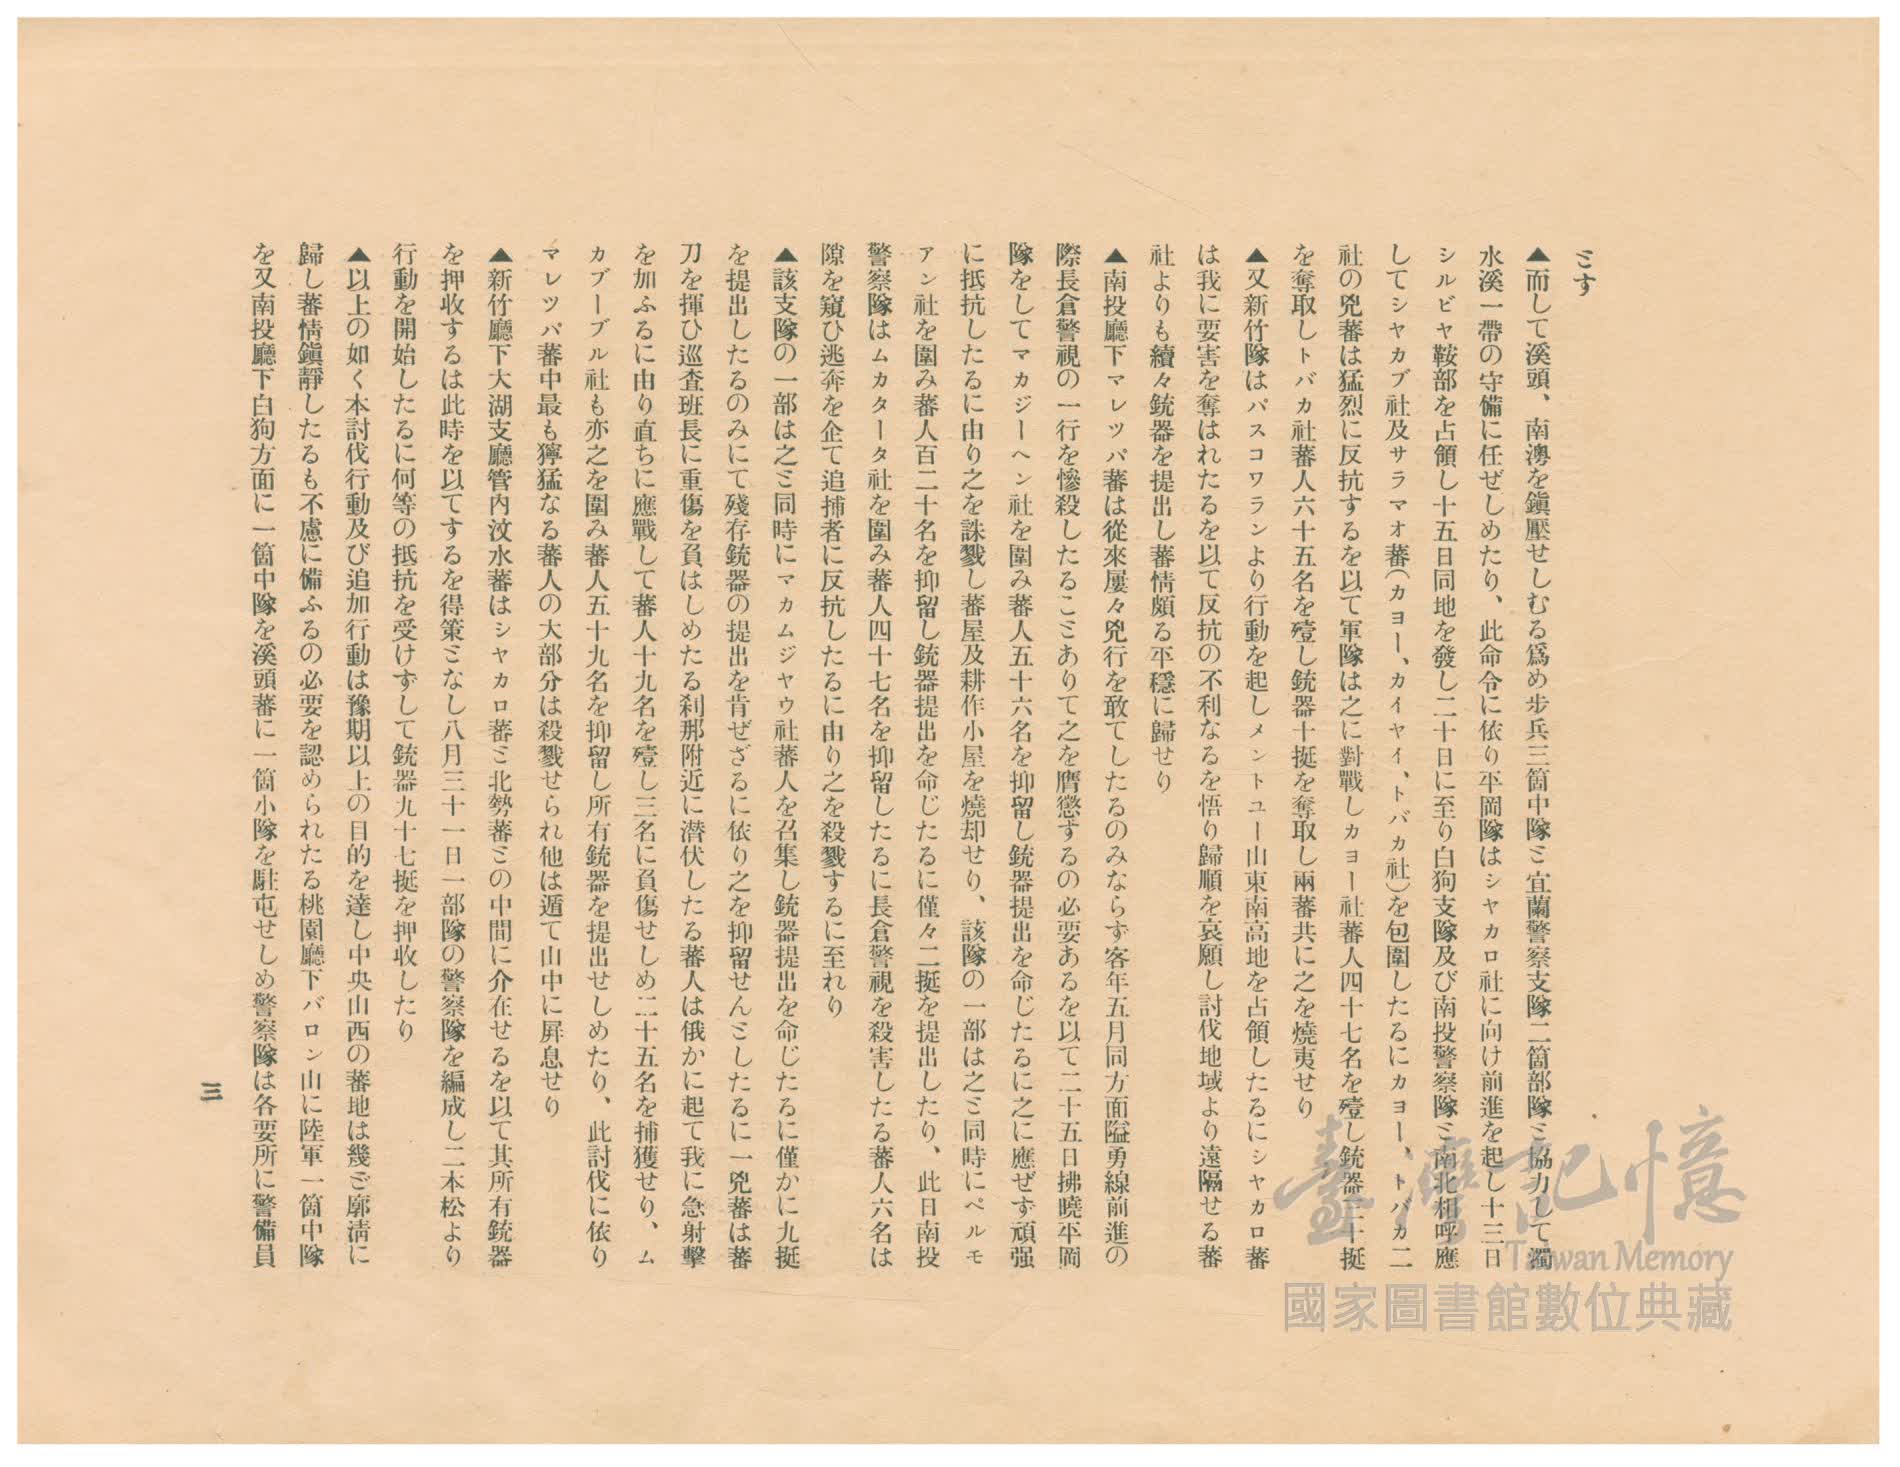 ミす
▲而して溪頭、南澳を鎭壓せしむる爲め步兵三箇中隊ミ宜蘭警察支隊二箇部隊ミ協力して濁
水溪一帶の守備に任ぜしめたり、此命令に依り平岡隊はシヤカロ社に向け前進を起し十三日
シルビヤ鞍部を占領し十五日同地を發し二十日に至り白狗支隊及び南投警察隊ミ南北相呼應
してシヤカブ社及サラマオ蕃(カヨー、カイヤイ、トバカ社)を包圍したるにカヨー、トバカ二
社の兇蕃は猛烈に反抗するを以て軍隊は之に對戰しカヨー社蕃人四十七名を殪し銃器三十挺
を奪取しトバカ社蕃人六十五名を殪し銃器十挺を奪取し兩蕃共に之を燒夷せり
▲又新竹隊はパスコワランより行動を起しメントユー山東南高地を占領したるにシヤカロ蕃
は我に要害を奪はれたるを以て反抗の不利なるを悟り歸順を哀願し討伐地域より遠隔せる蕃
社よりも續々銃器を提出し蕃情頗る平穩に歸せり
▲南投廳下マレツパ蕃は從來屢々兇行を敢てしたるのみならず客年五月同方面隘勇線前進の
際長倉警視の一行を慘殺したるこミありて之を膺懲するの必要あるを以て二十五日拂曉平岡
隊をしてマカジーヘン社を圍み蕃人五十六名を抑留し銃器提出を命じたるに之に應ぜず頑强
に抵抗したるに由り之を誅戮し蕃屋及耕作小屋を燒却せり、該隊の一部は之ミ同時にペルモ
アン社を圍み蕃人百二十名を抑留し銃器提出を命じたるに僅々二挺を提出したり、此日南投
警察隊はムカタータ社を圍み蕃人四十七名を抑留したるに長倉警視を殺害したる蕃人六名は
隙を窺ひ逃奔を企て追捕者に反抗したるに由り之を殺戮するに至れり
▲該支隊の一部は之ミ同時にマカムジヤウ社蕃人を召集し銃器提出を命じたるに僅かに九挺
を提出したるのみにて殘存銃器の提出を肯ぜざるに依り之を抑留せんミしたるに一兇蕃は蕃
刀を揮ひ巡査班長に重傷を負はしめたる刹那附近に潜伏したる蕃人は俄かに起て我に急射擊
を加ふるに由り直ちに應戰して蕃人十九名を殪し三名に負傷せしめ二十五名を捕獲せり、ム
カブーブル社も亦之を圍み蕃人五十九名を抑留し所有銃器を提出せしめたり、此討伐に依り
マレツパ蕃中最も獰猛なる蕃人の大部分は殺戮せられ他は遁て山中に屛息せり
▲新竹廳下大湖支廳管內汶水蕃はシヤカロ蕃ミ北勢蕃ミの中間に介在せるを以て其所有銃器
を押收するは此時を以てするを得策ミなし八月三十一日一部隊の警察隊を編成し二本松より
行動を開始したるに何等の抵抗を受けずして銃器九十七挺を押收したり
▲以上の如く本討伐行動及び追加行動は豫期以上の目的を達し中央山西の蕃地は幾ご廓淸に
歸し蕃情鎭靜したるも不慮に備ふるの必要を認められたる桃園廳下バロン山に陸軍一箇中隊
を又南投廳下白狗方面に一箇中隊を溪頭蕃に一箇小隊を駐屯せしめ警察隊は各要所に警備員
三
臺灣記憶
Taiwan Memory
國家圖書館數位典藏